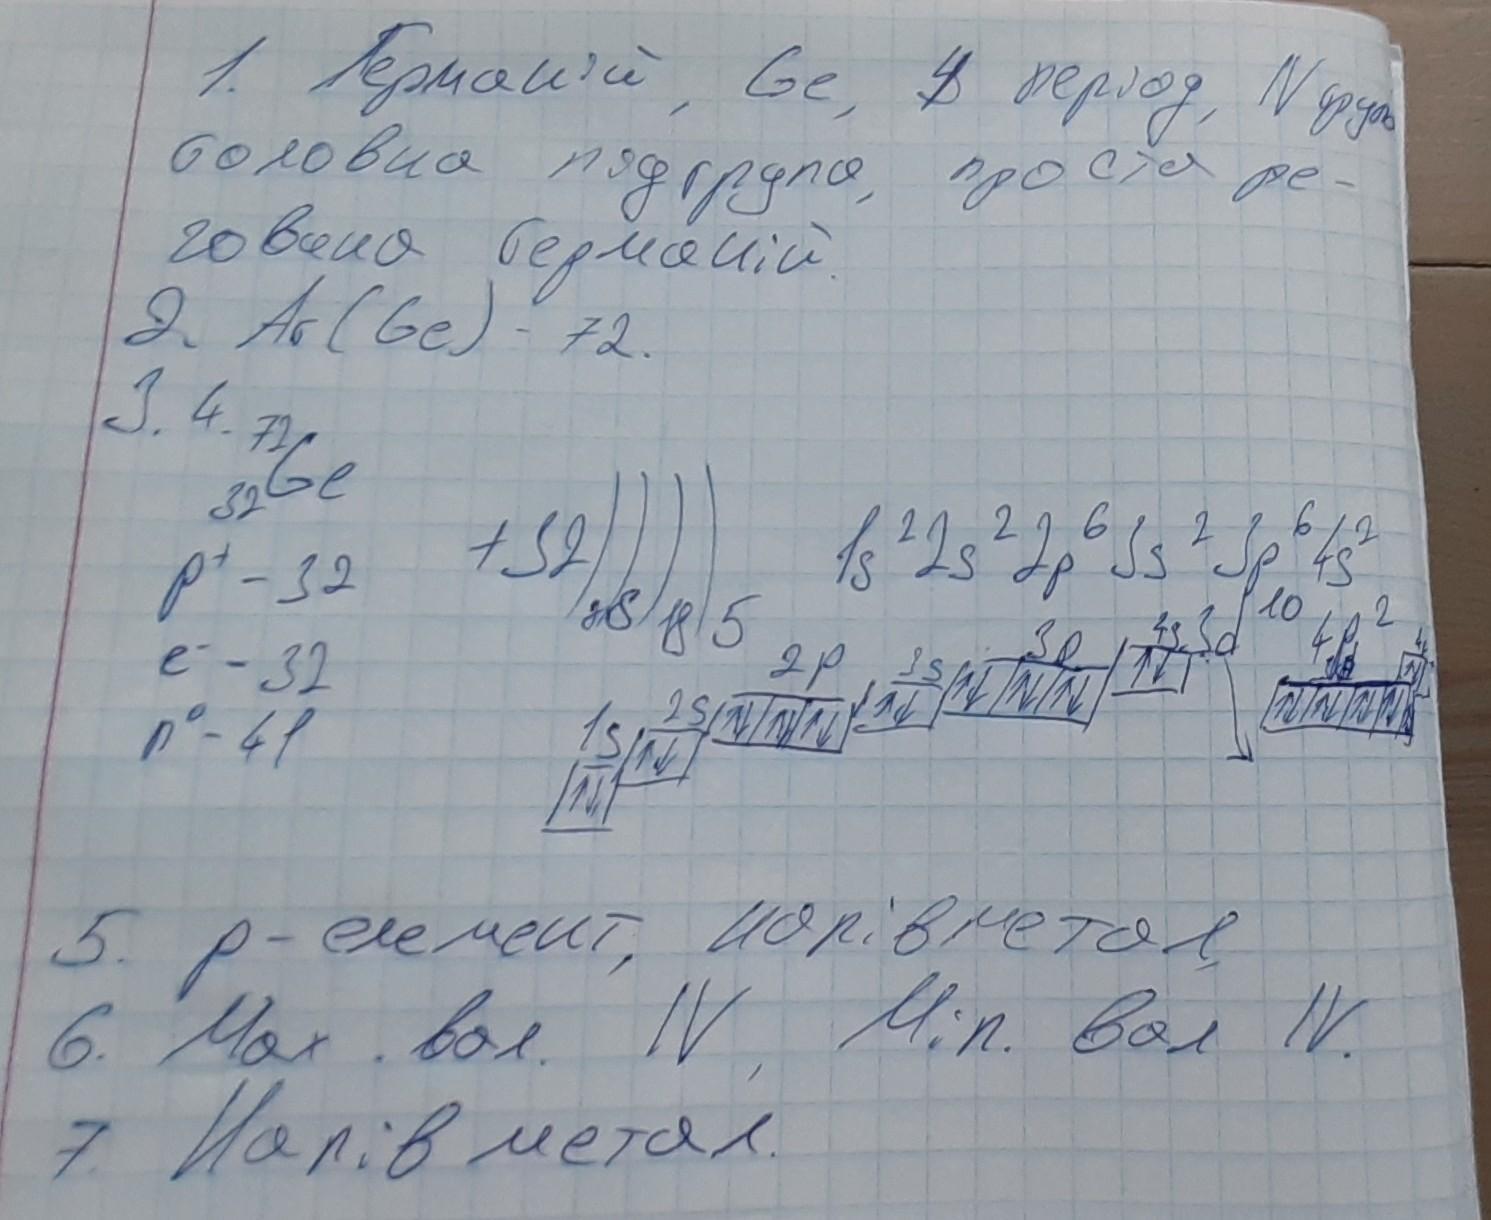 1. Германій, Ge, 4 період, IV група
головна підгрупа, проста ре-
човина германій.
2. Ar(Ge) - 72.
3. 4. 72
32 Ge
p+ - 32
e- - 32
n° - 41
+32 ) ) ) ) 2 8 18 5
1s² 2s² 2p⁶ 3s² 3p⁶ 4s²
3d¹⁰ 4p²
1s 2s 2p 3s 3p 4s
5. p-елемент, напівметал,
6. Max. вал. IV, Min. вал IV.
7. Напівметал.